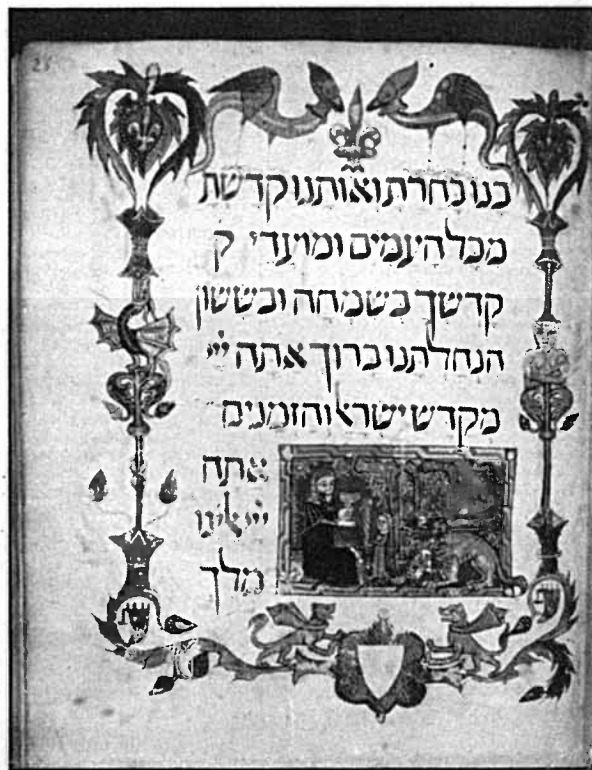 26
בנו בחרת ואותנו קדשת
מכל העמים ומועדי ק
קדשך בשמחה ובששון
הנחלתנו ברוך אתה יי
מקדש ישראל והזמנים
אתה
מלך